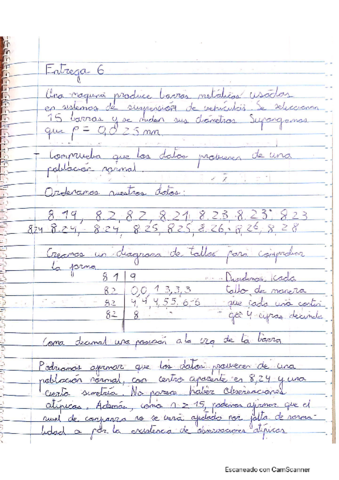 Entrega 6
Una maquina produce barras metálicas usadas
en sistemas de suspensión de vehículos. Se selecciona
15 barras y se miden sus diámetros. Supongamos
que = 0,025 mm
- Comprueba que los datos provienen de una
población normal
Ordenamos nuestros datos:
8.19, 8.2, 8.2, 8.21 8.23 8.23 8.23
8.24 8.24, 8.24, 8.25, 8.25, 8.26, 8.26, 8.28
Creamos un diagrama de tallos para comprobar
la forma
81 | 9 Dividimos cada
82 | 0,0 1,3,3,3 tallo de manera
82 | 4,4,4,5,5,6,6 que cada uno
82 | 8 4 cifras
Coma decimal una posición a la izq de la barra
Podríamos afirmar que los datos provienen de una
población normal, con centro aparente en 8,24 y una
cierta simetría. No parece haber observaciones
atípicas. Además, como n ≥ 15, podemos afirmar que el
de confianza no se verá afectado por falta de norma-
lidad o por la existencia de observaciones atípicas
Escaneado con CamScanner